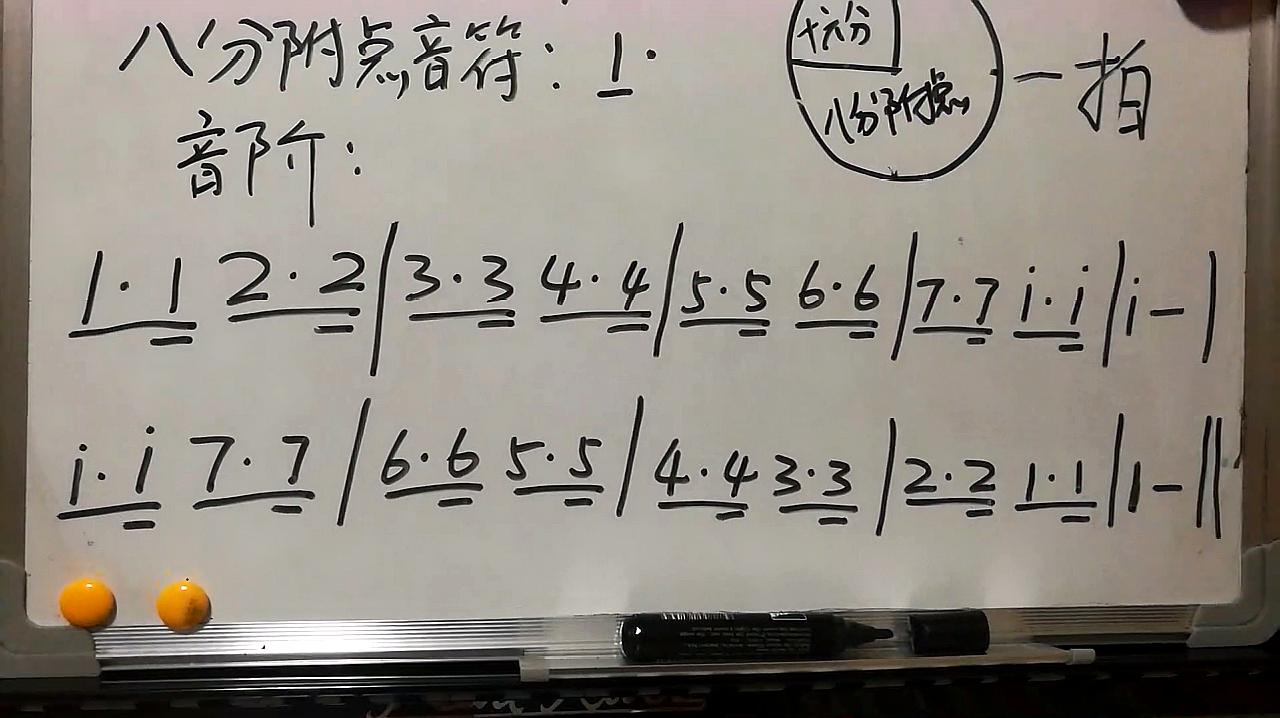 八分附点音符：1·
十六分
八分附点
一拍
音阶：
1·1 2·2|3·3 4·4|5·5 6·6|7·7 i·i|i-|
i·i 7·7|6·6 5·5|4·4 3·3|2·2 1·1|1-‖